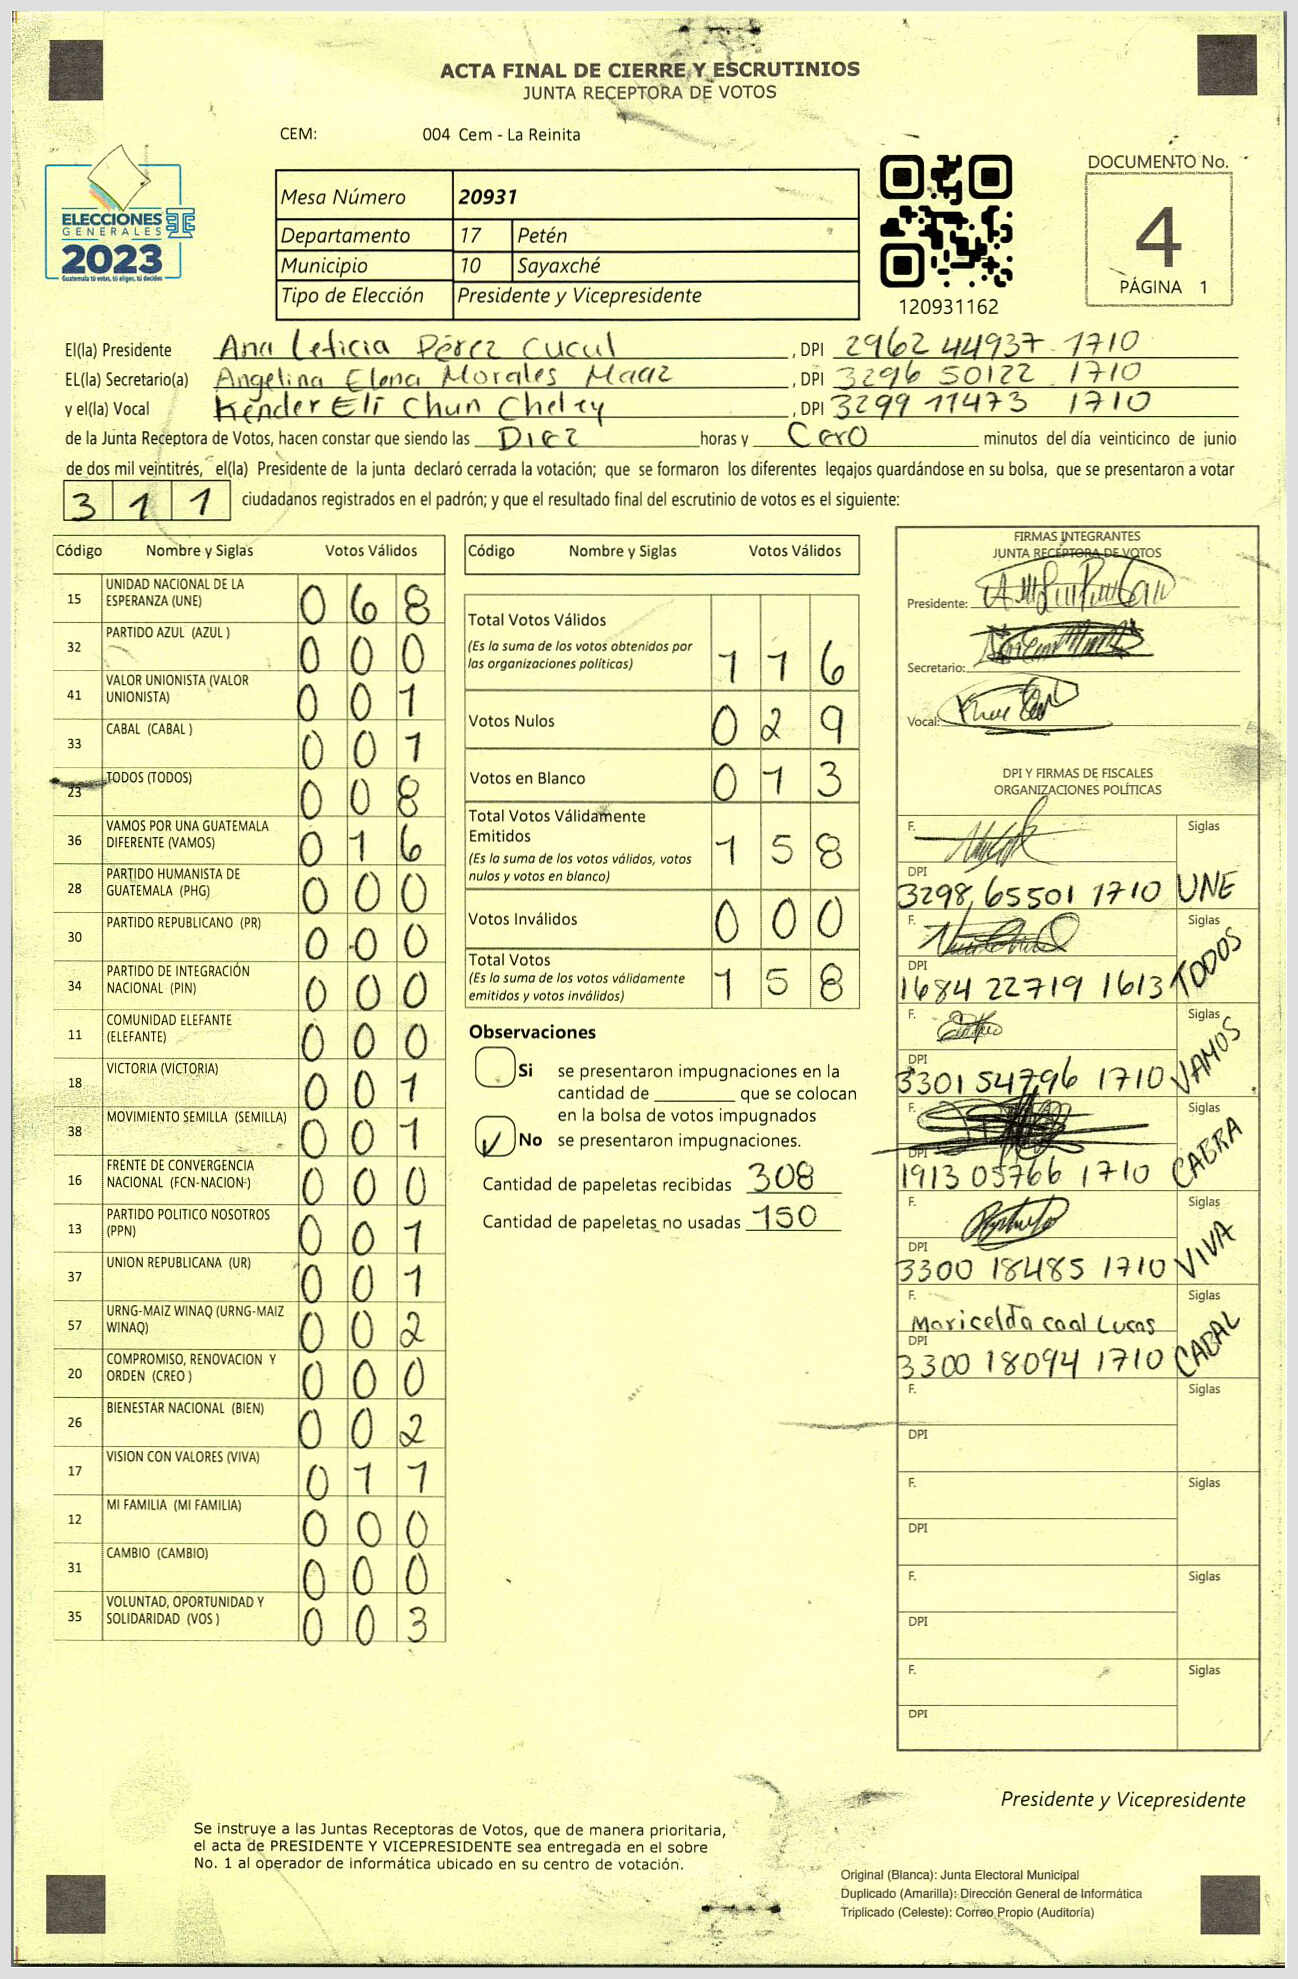 ACTA FINAL DE CIERRE Y ESCRUTINIOS
JUNTA RECEPTORA DE VOTOS
CEM: 004 Cem - La Reinita
ELECCIONES
GENERALES
2023
Guatemala tú votas, tú eliges, tú decides
Mesa Número 20931
Departamento 17 Petén
Municipio 10 Sayaxché
Tipo de Elección Presidente y Vicepresidente
120931162
DOCUMENTO No.
4
PÁGINA 1
El(la) Presidente Ana Leticia Pérez Cucul , DPI 2962 44937 1710
EL(la) Secretario(a) Angelina Elena Morales Maaz , DPI 3296 50122 1710
y el(la) Vocal Kender Eli Chun , DPI 3299 11473 1710
de la Junta Receptora de Votos, hacen constar que siendo las Diez horas y Cero minutos del día veinticinco de junio
de dos mil veintitrés, el(la) Presidente de la junta declaró cerrada la votación; que se formaron los diferentes legajos guardándose en su bolsa, que se presentaron a votar
3 1 1 ciudadanos registrados en el padrón; y que el resultado final del escrutinio de votos es el siguiente:
Código Nombre y Siglas Votos Válidos
15 UNIDAD NACIONAL DE LA ESPERANZA (UNE) 0 6 8
32 PARTIDO AZUL (AZUL ) 0 0 0
41 VALOR UNIONISTA (VALOR UNIONISTA) 0 0 1
33 CABAL (CABAL ) 0 0 1
23 TODOS (TODOS) 0 0 8
36 VAMOS POR UNA GUATEMALA DIFERENTE (VAMOS) 0 1 6
28 PARTIDO HUMANISTA DE GUATEMALA (PHG) 0 0 0
30 PARTIDO REPUBLICANO (PR) 0 0 0
34 PARTIDO DE INTEGRACIÓN NACIONAL (PIN) 0 0 0
11 COMUNIDAD ELEFANTE (ELEFANTE) 0 0 0
18 VICTORIA (VICTORIA) 0 0 1
38 MOVIMIENTO SEMILLA (SEMILLA) 0 0 1
16 FRENTE DE CONVERGENCIA NACIONAL (FCN-NACION-) 0 0 0
13 PARTIDO POLITICO NOSOTROS (PPN) 0 0 1
37 UNION REPUBLICANA (UR) 0 0 1
57 URNG-MAIZ WINAQ (URNG-MAIZ WINAQ) 0 0 2
20 COMPROMISO, RENOVACION Y ORDEN (CREO ) 0 0 0
26 BIENESTAR NACIONAL (BIEN) 0 0 2
17 VISION CON VALORES (VIVA) 0 1 1
12 MI FAMILIA (MI FAMILIA) 0 0 0
31 CAMBIO (CAMBIO) 0 0 0
35 VOLUNTAD, OPORTUNIDAD Y SOLIDARIDAD (VOS ) 0 0 3
Código Nombre y Siglas Votos Válidos
Total Votos Válidos
(Es la suma de los votos obtenidos por
las organizaciones políticas) 1 1 6
Votos Nulos 0 2 9
Votos en Blanco 0 1 3
Total Votos Válidamente
Emitidos
(Es la suma de los votos válidos, votos
nulos y votos en blanco) 1 5 8
Votos Inválidos 0 0 0
Total Votos
(Es la suma de los votos válidamente
emitidos y votos inválidos) 1 5 8
Observaciones
Si se presentaron impugnaciones en la
cantidad de que se colocan
en la bolsa de votos impugnados
No se presentaron impugnaciones.
Cantidad de papeletas recibidas 308
Cantidad de papeletas no usadas 150
FIRMAS INTEGRANTES
JUNTA RECEPTORA DE VOTOS
Presidente:
Secretario:
Vocal:
DPI Y FIRMAS DE FISCALES
ORGANIZACIONES POLÍTICAS
F. Siglas
DPI
3298 65501 1710 UNE
F. Siglas
DPI
1684 22719 1613 TODOS
F. Siglas
DPI
3301 54796 1710 VAMOS
F. Siglas
DPI
1913 05766 1710 CABRA
F. Siglas
DPI
3300 18485 1710 VIVA
F. Siglas
Maricelda Caal Lucas
DPI
3300 18094 1710 CABAL
F. Siglas
DPI
F. Siglas
DPI
F. Siglas
DPI
F. Siglas
DPI
Presidente y Vicepresidente
Se instruye a las Juntas Receptoras de Votos, que de manera prioritaria,
el acta de PRESIDENTE Y VICEPRESIDENTE sea entregada en el sobre
No. 1 al operador de informática ubicado en su centro de votación.
Original (Blanca): Junta Electoral Municipal
Duplicado (Amarilla): Dirección General de Informática
Triplicado (Celeste): Correo Propio (Auditoría)